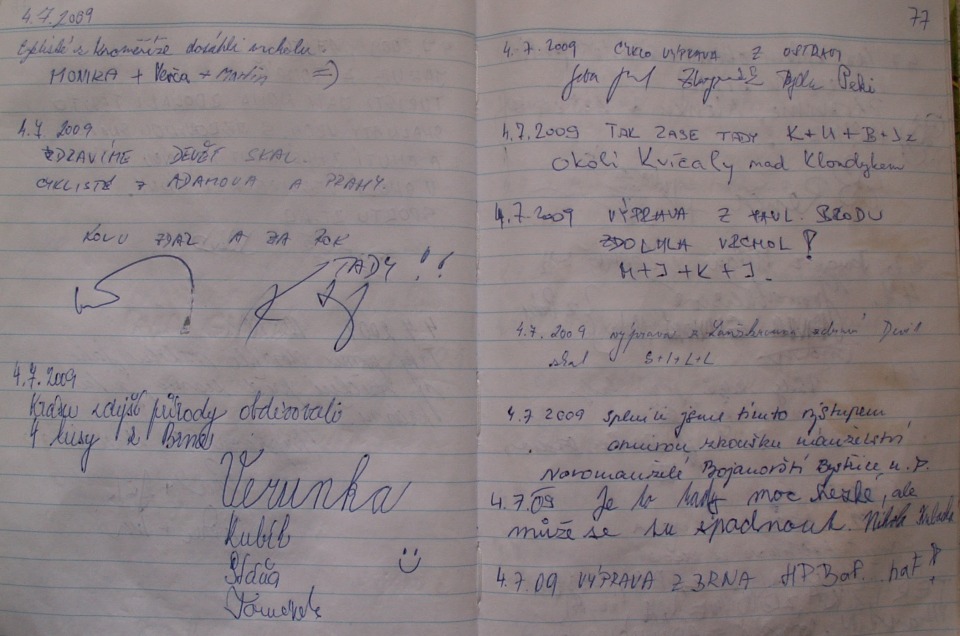 4.7.2009
z Kroměříže dosáhli vrcholu.
MONIKA + Verča + Martin =)
4.7. 2009
ZDRAVÍME DEVĚT SKAL.
CYKLISTÉ Z ADAMOVA A PRAHY.
KOLU ZDAR A ZA ROK
TADY !!
4.7.2009
Krásu zdejší přírody obdivovali
4 kusy z Brna
Verunka
Kubík
☺
77
4.7.2009 CYKLO VÝPRAVA Z OSTRAVY
4.7.2009 TAK ZASE TADY
Okolí Kvíčaly nad Klondykem
4.7.2009 VÝPRAVA Z HAVL. BRODU
ZDOLALA VRCHOL!
M+J+K+J.
4.7.2009 výprava z Lanškrouna
skal S+I+L+L
4.7 2009 splnili jsme tímto výstupem
zkoušku manželství
Novomanželé Bojanovští Bystřice n. P.
4.7.09 Je to tady moc hezké, ale
může se tu spadnout. Nikola
4.7.09 VÝPRAVA Z BRNA